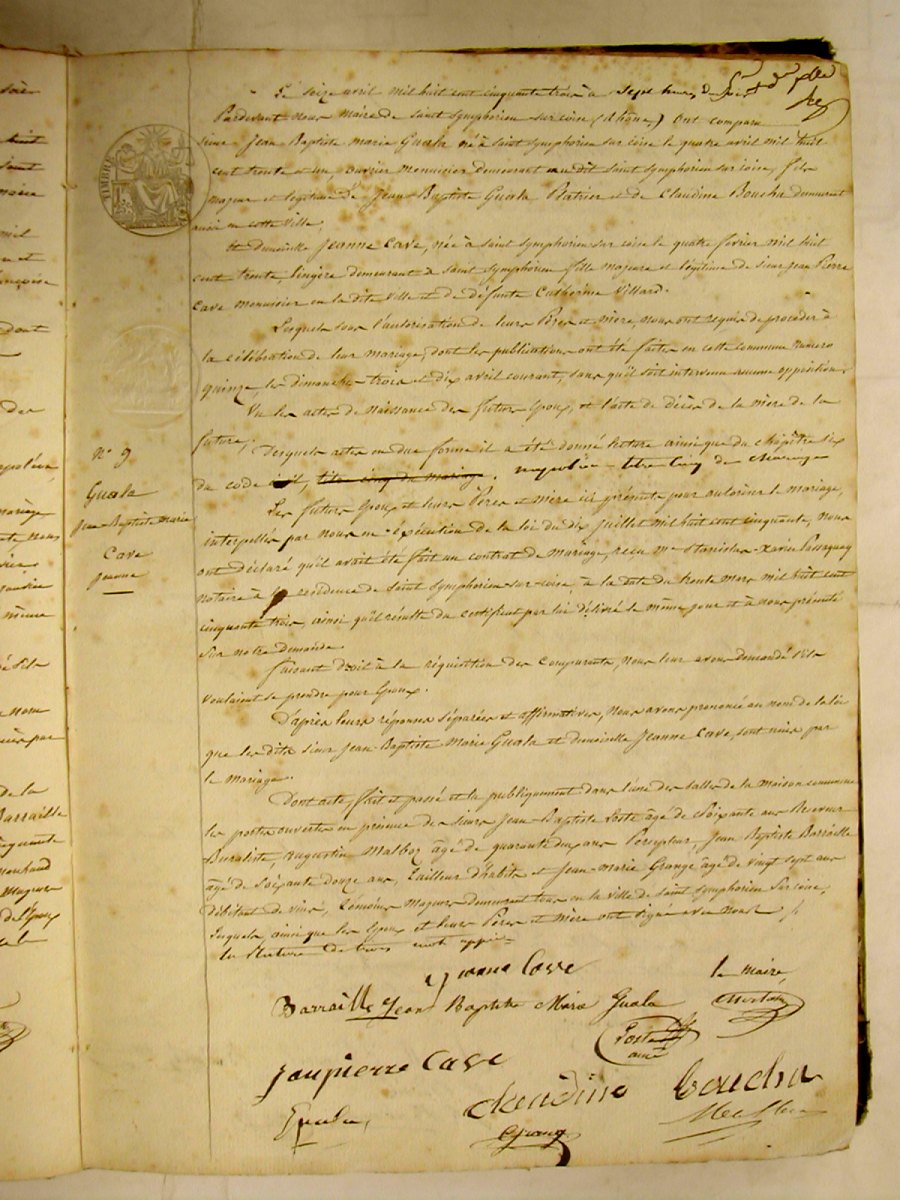 Le Seize avril mil huit cent cinquante trois à Sept heures du Soir
Pardevant Nous Maire de Saint Symphorien sur coise (Rhône) Ont comparu
Sieur Jean Baptiste Marie Guala né à Saint Symphorien sur coise le quatre avril mil huit
cent trente et un ouvrier Menuisier demeurant au dit Saint Symphorien sur coise, fils
majeur et légitime de Jean Baptiste Guala Platrier et de Claudine Bouchu demeurant
aussi en cette Ville,
Et Demoiselle Jeanne Cave, née à Saint Symphorien sur coise le quatre février mil huit
cent trente, lingère demeurant à Saint Symphorien fille majeure et légitime de sieur Jean Pierre
Cave Menuisier en la dite Ville et de défunte Catherine Villard.
Lesquels sous l'autorisation de leurs Pères et mère, nous ont requis de procéder à
la célébration de leur mariage, dont les publications ont été faites en cette commune Numero
quinze, les dimanches trois et dix avril courant, sans qu'il soit intervenu aucune opposition.
Vu les actes de Naissance des futurs Epoux, et l'acte de décès de la mère de la
future,
Desquels actes en due forme il a été donné lecture ainsi que du chapitre six
du code civil, titre cinq du Mariage. titre cinq du Mariage
Les futurs Epoux et leurs Pères et mère ici présents pour autoriser le mariage,
interpellés par Nous en exécution de la loi du dix Juillet mil huit cent cinquante, Nous
ont déclaré qu'il avait été fait un contrat de Mariage, reçu Me Stanislas Xavier
notaire à la résidence de Saint Symphorien sur coise, à la date du trente Mars mil huit cent
cinquante trois, ainsi qu'il résulte du certificat par lui délivré le même jour et à nous présenté
sur notre demande.
faisant droit à la réquisition des comparants, Nous leur avons demandé s'ils
voulaient se prendre pour Epoux.
D'après leurs réponses séparées et affirmatives, Nous avons prononcé au nom de la loi
que les dits sieur Jean-Baptiste Marie Guala et demoiselle Jeanne Cave, sont unis par
le Mariage.
Dont acte, fait et passé et lu publiquement dans l'une des salles de la Maison commune
les portes ouvertes en présence des sieurs Jean-Baptiste Poste âgé de Soixante ans Receveur
Buraliste, Augustin Malboz âgé de quarante deux ans Percepteur, Jean Baptiste Barraille
âgé de Soixante douze ans, Tailleur d'habits et Jean-Marie Grange âgé de vingt sept ans
débitant de vins, témoins Majeurs demeurant tous en la Ville de Saint Symphorien sur coise,
Lesquels ainsi que les Epoux et leurs Pères et mère ont signé avec Nous
la Rature de trois mots
Jeanne Cave
Barraille Jean Baptiste Marie Guala
le Maire
Poste
ainé
Jean pierre Cave
Claudine Bouchu
Guala
Grange
N° 9
Guala
Jean-Baptiste Marie
Cave
Jeanne
TIMBRE